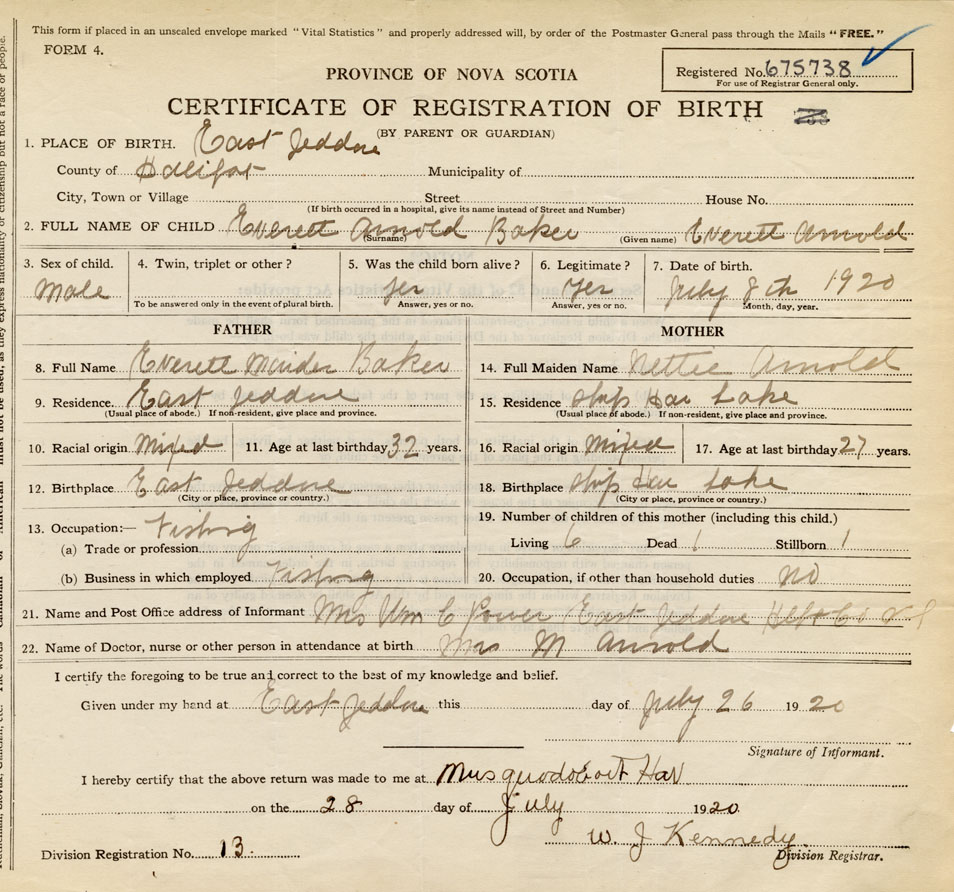 This form if placed in an unscaled envelope marked "Vital Statistics" and properly addressed will, by order of the Postmaster General pass through the Mails "FREE."
FORM 4.
Registered No. 675738
For use of Registrar General only.
PROVINCE OF NOVA SCOTIA
CERTIFICATE OF REGISTRATION OF BIRTH
(BY PARENT OR GUARDIAN)
1. PLACE OF BIRTH. East Jeddore
County of Halifax Municipality of
City, Town or Village Street House No.
(If birth occurred in a hospital, give its name instead of Street and Number)
2. FULL NAME OF CHILD Everett Arnold Baker Everett Arnold
(Surname) (Given name)
3. Sex of child. 4. Twin, triplet or other? 5. Was the child born alive? 6. Legitimate? 7. Date of birth.
Male yes yes July 8th 1920
To be answered only in the event of plural birth. Answer, yes or no. Answer, yes or no. Month, day, year.
FATHER
8. Full Name Everett Baker
9. Residence. East Jeddore
(Usual place of abode.) If non-resident, give place and province.
10. Racial origin Mixed 11. Age at last birthday 32 years.
12. Birthplace East Jeddore
(City or place, province or country.)
13. Occupation:— Fishing
(a) Trade or profession
(b) Business in which employed Fishing
MOTHER
14. Full Maiden Name Nettie Arnold
15. Residence Ship Har Lake
(Usual place of abode.) If non-resident, give place and province.
16. Racial origin Mixed 17. Age at last birthday 27 years.
18. Birthplace Ship Har Lake
(City or place, province or country.)
19. Number of children of this mother (including this child.)
Living 6 Dead 1 Stillborn 1
20. Occupation, if other than household duties no
21. Name and Post Office address of Informant Mrs Wm C Power East Jeddore Hlfx Co N S
22. Name of Doctor, nurse or other person in attendance at birth Mrs M Arnold
I certify the foregoing to be true and correct to the best of my knowledge and belief.
Given under my hand at East Jeddore this day of July 26 1920
Signature of Informant.
I hereby certify that the above return was made to me at Musquodoboit Har
on the 28 day of July 1920
W. J Kennedy
Division Registration No. 13. Division Registrar.